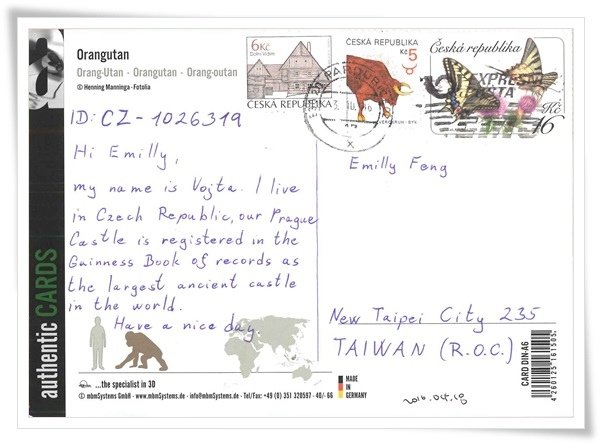 Orangutan
Orang-Utan · Orangutan · Orang-outan
© Henning Manninga · Fotolia
6Kč
Dolní Vidim
ČESKÁ REPUBLIKA
ČESKÁ REPUBLIKA
Kč 5
BÝK
Česká republika
Kč
16
PARDUBICE
ID: CZ-1026319
Hi Emilly,
my name is Vojta. I live
in Czech Republic, our Prague
Castle is registered in the
Guinness Book of records as
the largest ancient castle
in the world.
Have a nice day.
Emilly Feng
New Taipei City 235
TAIWAN (R.O.C.)
2016.04.18
authentic CARDS
...the specialist in 3D
© mbmSystems GmbH · www.mbmSystems.de · info@mbmSystems.de · Tel/Fax: +49 (0) 351 320597 - 40/- 66
MADE
IN
GERMANY
CARD DIN-A6
4260125161505